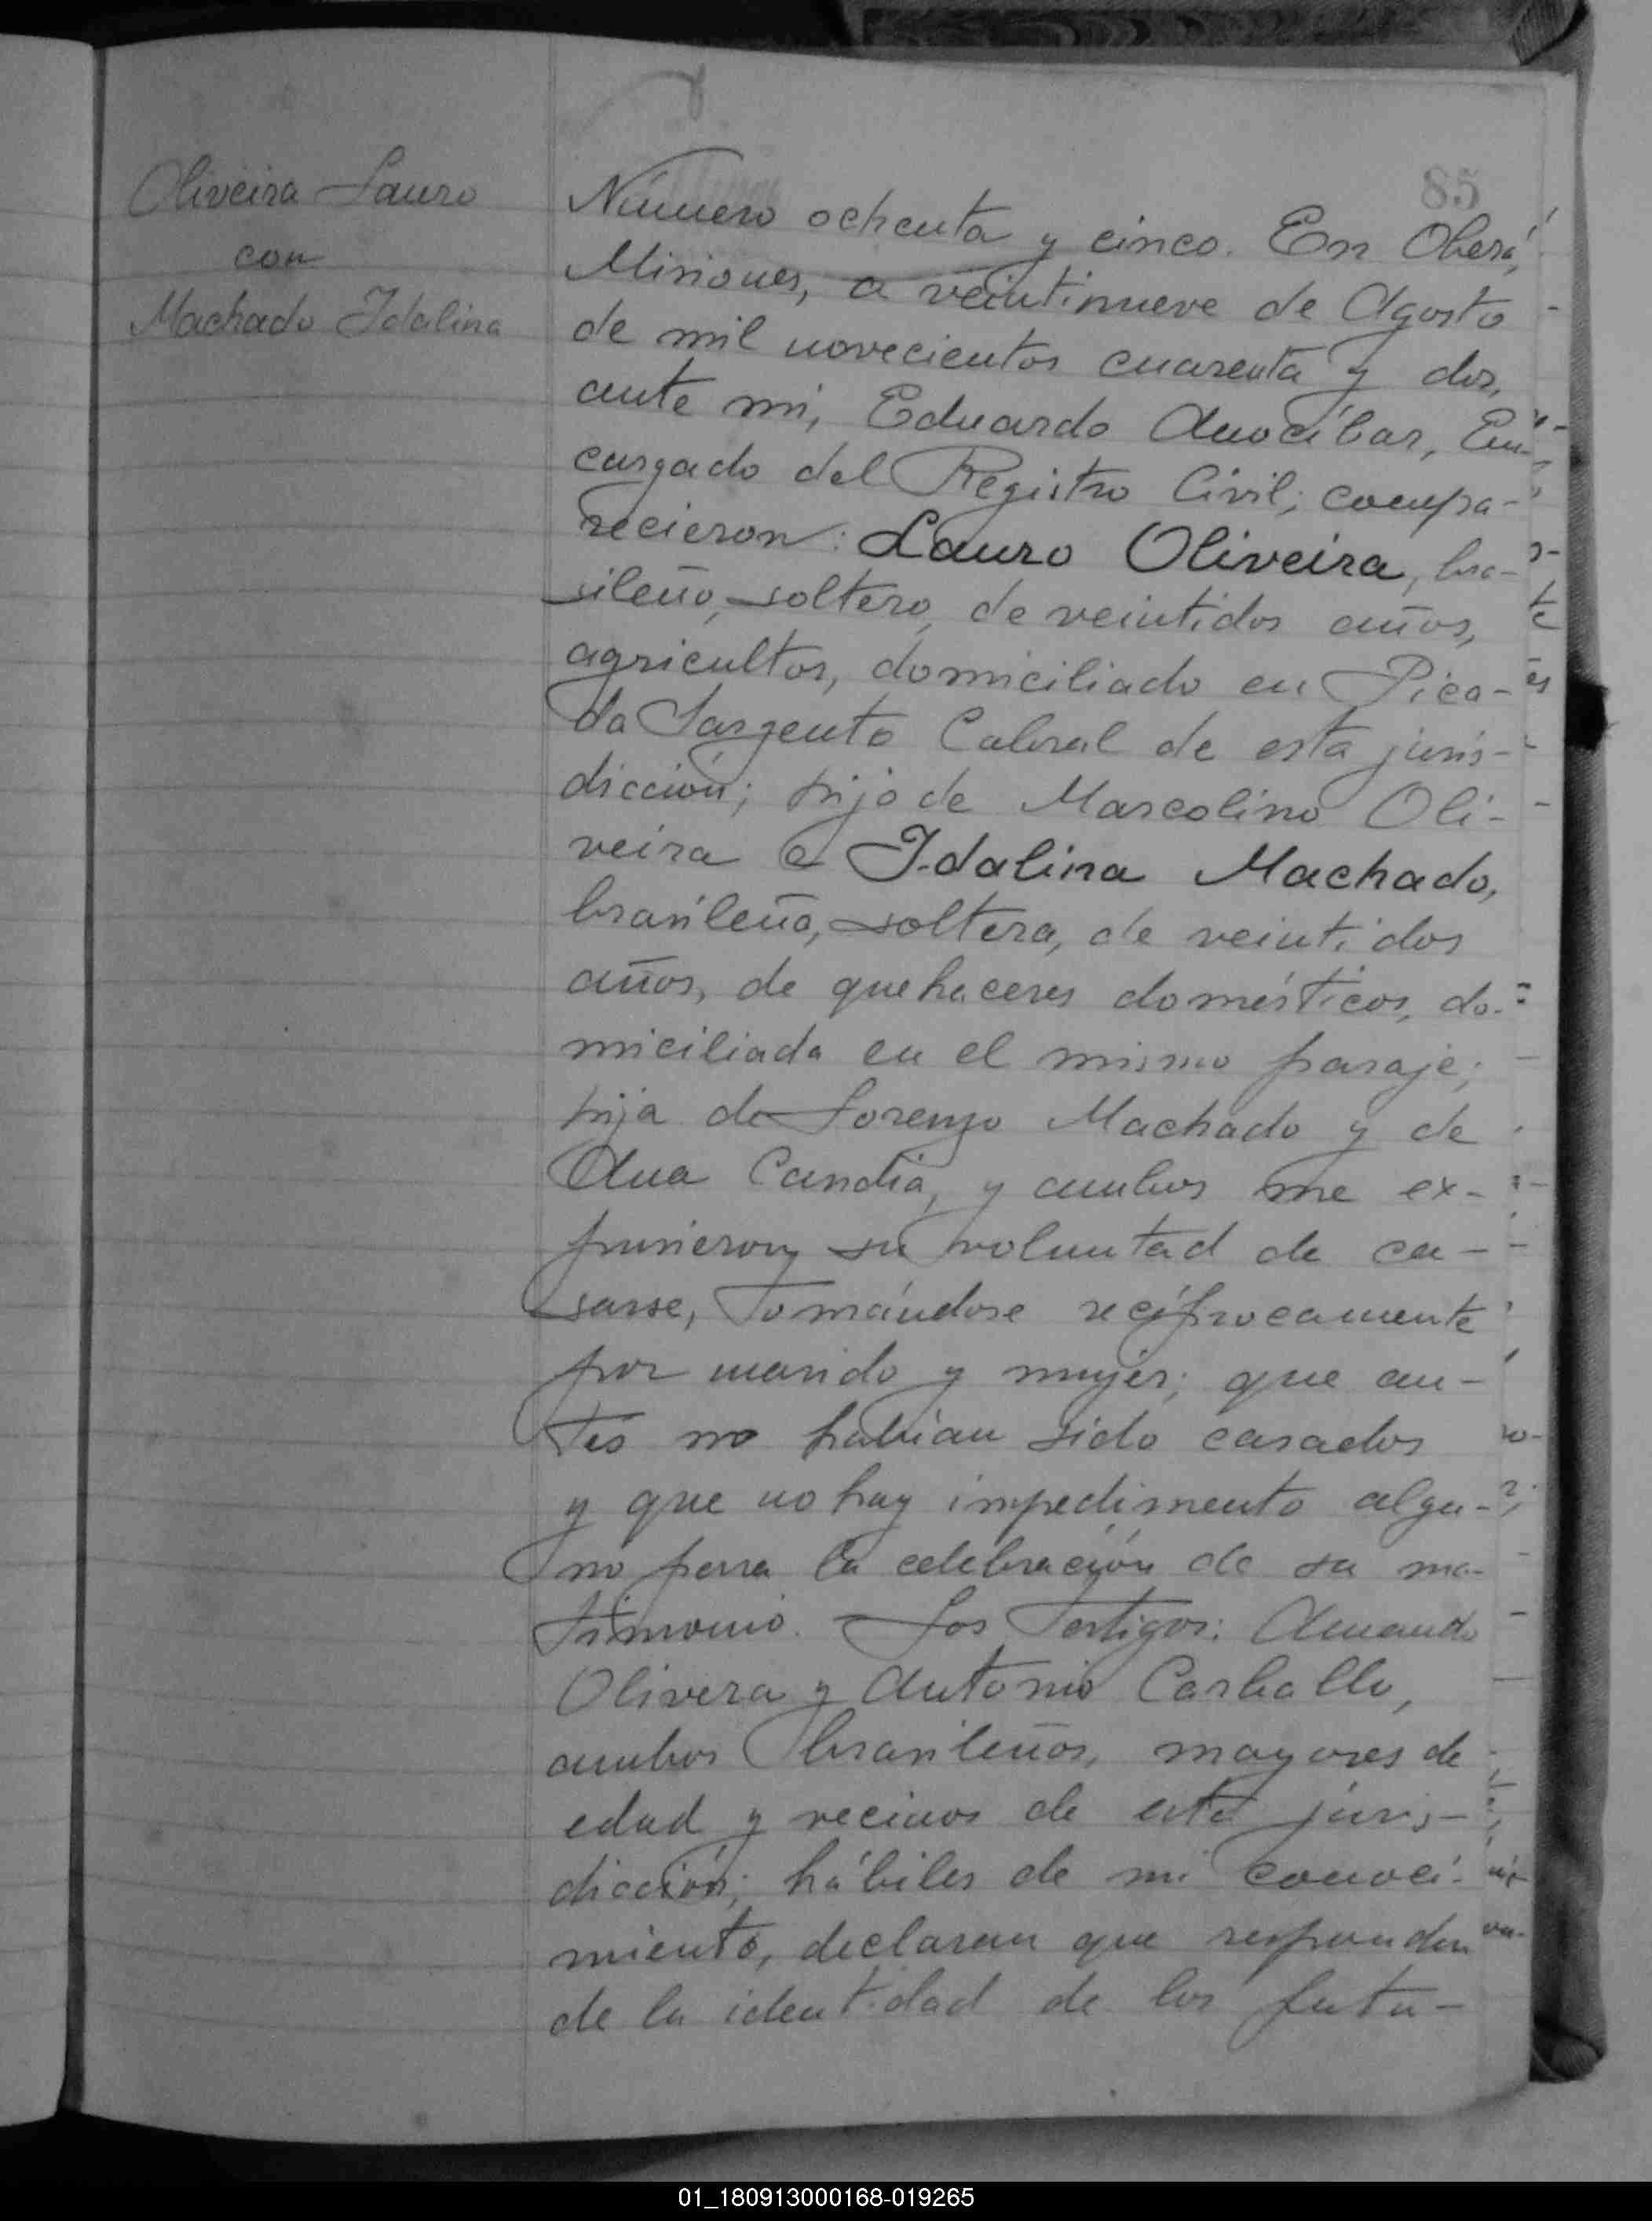 85
Oliveira Lauro
con
Machado Idalina
Número ochenta y cinco. En Oberá,
Misiones, a veintinueve de Agosto
de mil novecientos cuarenta y dos,
ante mi, Eduardo Anocíbar, En-
cargado del Registro Civil; compa-
recieron: Lauro Oliveira, bra-
sileño, soltero, de veintidos años,
agricultor, domiciliado en Pica-
da Sargento Cabral de esta juris-
dicción; hijo de Marcolino Oli-
veira e Idalina Machado,
brasileña, soltera, de veintidos
años, de quehaceres domésticos, do-
miciliada en el mismo paraje;
hija de Lorenzo Machado y de
Ana Candia, y ambos me ex-
pusieron su voluntad de ca-
sarse, tomándose recíprocamente
por marido y mujer; que an-
tes no habían sido casados
y que no hay impedimento algu-
no para la celebración de su ma-
trimonio. Los Testigos: Amando
Olivera y Antonio Carballo,
ambos brasileños, mayores de
edad y vecinos de esta juris-
dicción; hábiles de mi conoci-
miento, declaran que responden
de la identidad de los futu-
01_180913000168-019265